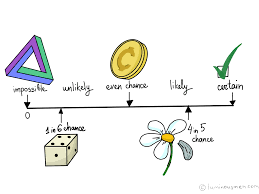 impossible unlikely even chance likely certain
0
1 in 6 chance
4 in 5
chance